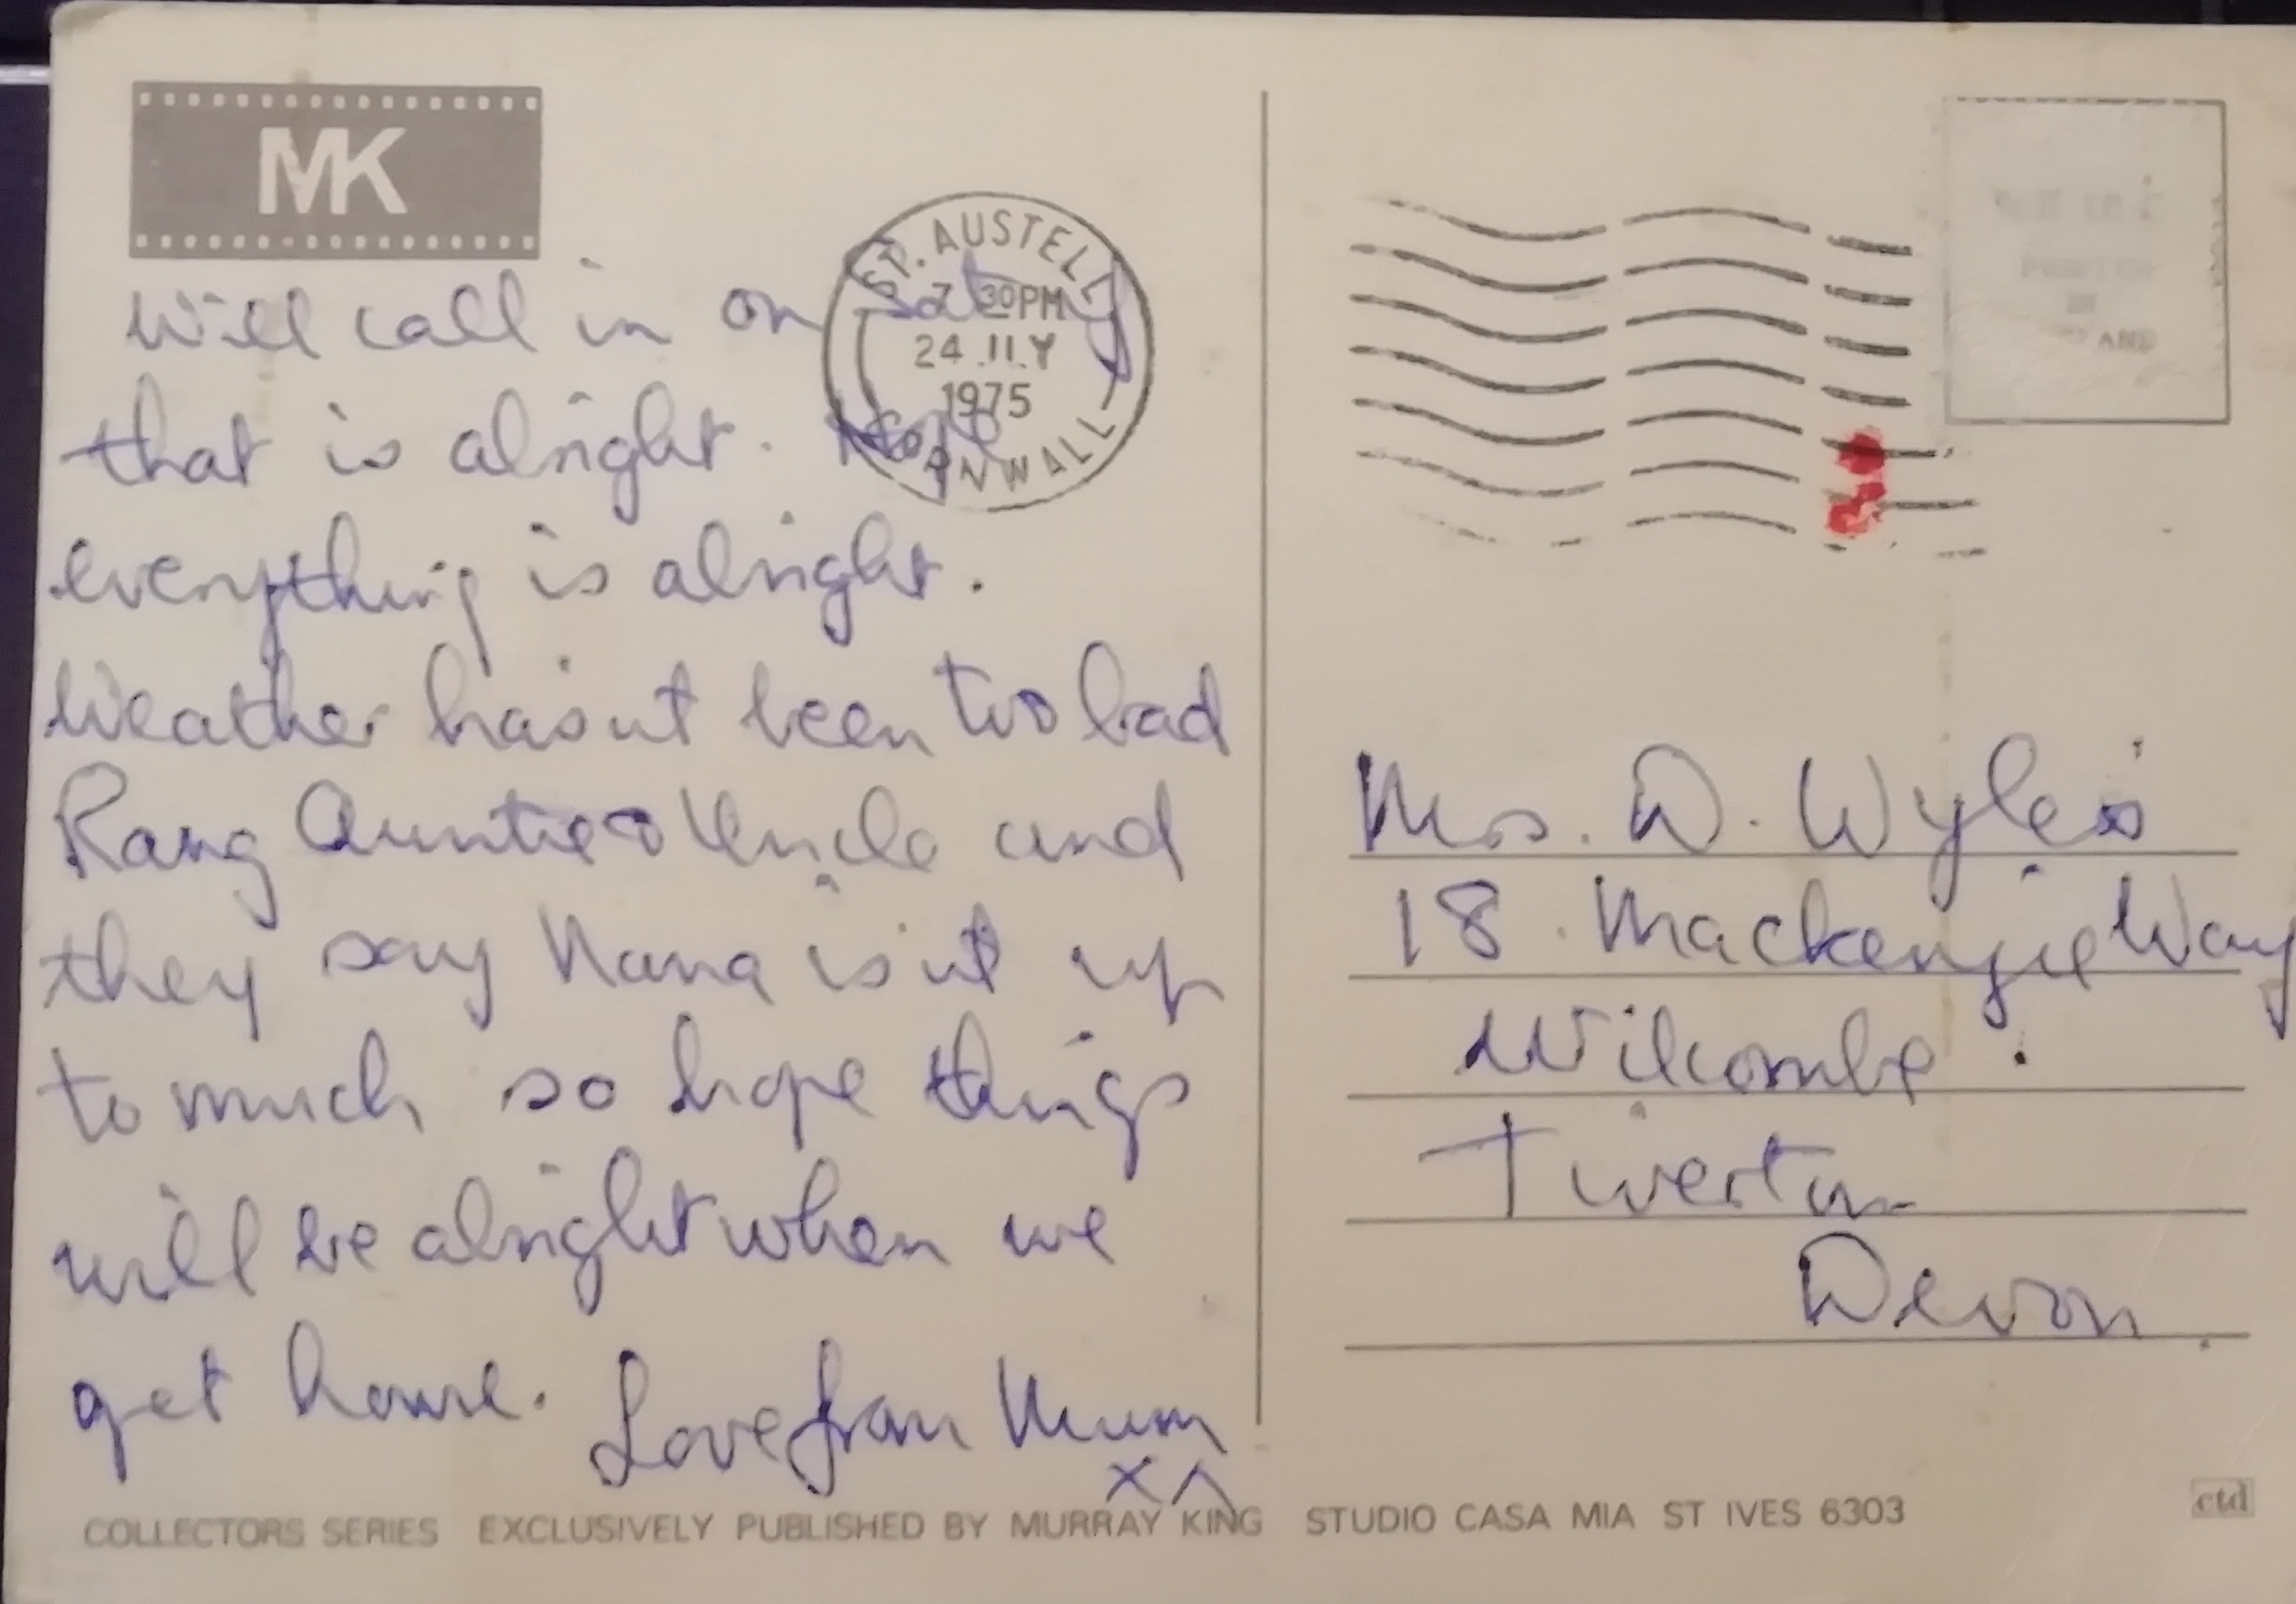 MK
Will call in on Sat if
that is alright. Hope
everything is alright.
Weather hasnt been too bad
Rang Auntie & Uncle and
they say Nana isnt up
to much so hope things
will be alright when we
get home. Love from Mum
x x
ST. AUSTELL
7 30PM
24 JLY
1975
CORNWALL
PRINTED
IN
Mrs. D. Wyles
18. Mackenzie Way
Wilcombe.
Tiverton
Devon.
COLLECTORS SERIES EXCLUSIVELY PUBLISHED BY MURRAY KING STUDIO CASA MIA ST IVES 6303
ctd